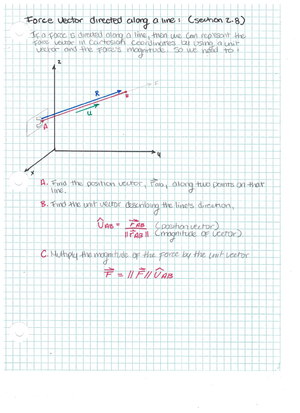 Force vector directed along a line: (section 2.8)
If a force is directed along a line, then we can represent the
force vector in cartesian coordinates by using a unit
vector and the force's magnitude. So we need to:
z
R
F
B
u
A
y
x
A. Find the position vector, r⃗AB, along two points on that
line.
B. Find the unit vector describing the line's direction,
ÛAB = r⃗AB (position vector)
||r⃗AB|| (magnitude of vector)
C. Multiply the magnitude of the force by the unit vector
F⃗ = ||F⃗|| ÛAB